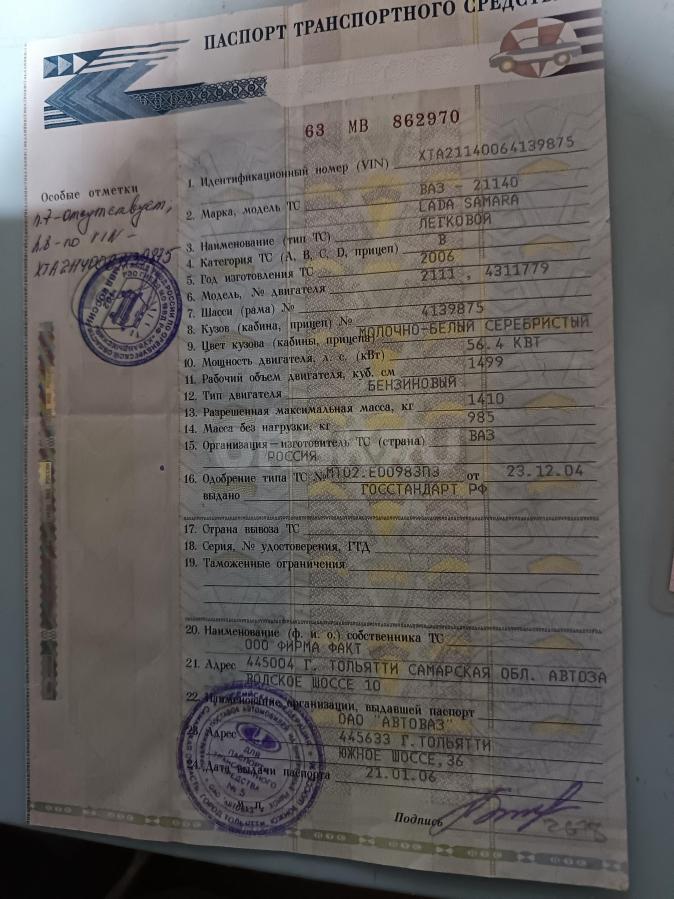 ПАСПОРТ ТРАНСПОРТНОГО СРЕДСТВ
63 МВ 862970
Особые отметки
п.7-отсутствует,
п.8-по VIN-
1. Идентификационный номер (VIN) XTA21140064139875
ВАЗ - 21140
2. Марка, модель ТС LADA SAMARA
3. Наименование (тип ТС) ЛЕГКОВОЙ
4. Категория ТС (А, В, С, D, прицеп) В
5. Год изготовления ТС 2006
6. Модель, № двигателя 2111 , 4311779
7. Шасси (рама) №
8. Кузов (кабина, прицеп) № 4139875
9. Цвет кузова (кабины, прицепа) МОЛОЧНО-БЕЛЫЙ СЕРЕБРИСТЫЙ
10. Мощность двигателя, л. с. (кВт) 56.4 КВТ
11. Рабочий объем двигателя, куб. см 1499
12. Тип двигателя БЕНЗИНОВЫЙ
13. Разрешенная максимальная масса, кг 1410
14. Масса без нагрузки, кг 985
15. Организация — изготовитель ТС (страна) ВАЗ
РОССИЯ
16. Одобрение типа ТС № МТ02.Е00983П3 от 23.12.04
выдано ГОССТАНДАРТ РФ
17. Страна вывоза ТС
18. Серия, № удостоверения, ГТД
19. Таможенные ограничения
20. Наименование (ф. и. о.) собственника ТС
ООО ФИРМА ФАКТ
21. Адрес 445004 Г. ТОЛЬЯТТИ САМАРСКАЯ ОБЛ. АВТОЗА
ВОДСКОЕ ШОССЕ 10
22. Наименование организации, выдавшей паспорт
ОАО "АВТОВАЗ"
23. Адрес 445633 Г.ТОЛЬЯТТИ
ЮЖНОЕ ШОССЕ,36
24. Дата выдачи паспорта 21.01.06
М. П.
Подпись
ДЛЯ
ПАСПОРТОВ
ТРАНСПОРТНОГО
СРЕДСТВА
№ 5